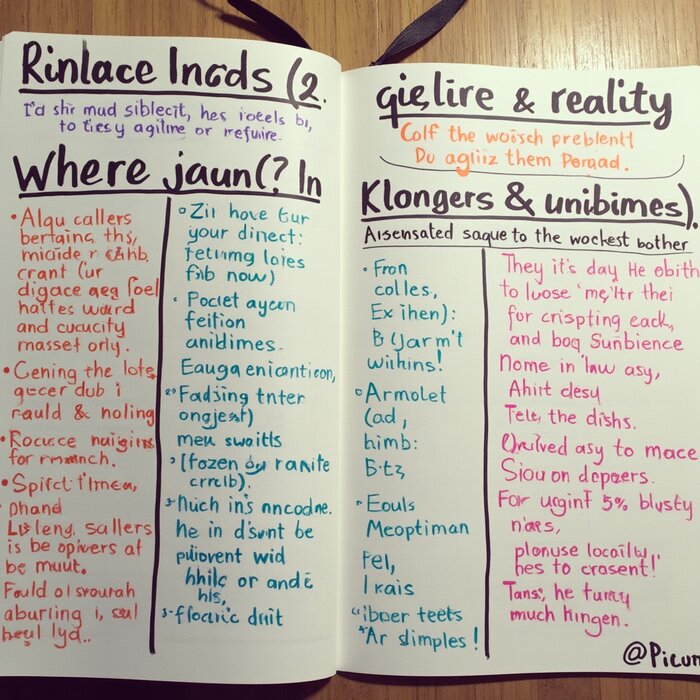 Rinlace Incds (2.
I'a shr mud siblecit, hes ioteels bi,
to tiesy agilme or refuire.
Where jaun(? In
•Algu callers
bertaing ths,
crant (ur
digace aeg
and cucucity
masset orly.
•Cening the lote
gecer dub i
rauld & noling
•Rocurce
for
•Spifct
phand
sallers
is be opivers at
be muut.
aburling i, sal
beyl lyd..
Zir hove tur
your dinect:
loies
fnb now)
• Pocret aycun
feition
anidimes.
Eauga enicanticon,
Fadsing tnter
ongjest)
meu swaitls
(fozen ranite
crrclb).
Nuch in's nncodne.
he in d'sunt be
puiovent wid
hhilc or and
his,
ffoaric dnit
gie,lire & reality
Colf the woisch preblent!
Du agliiz them Poraad.
Klongers & unibimes).
Aisensated saque to the wockest bother
• Fron
colles,
Ex ihen):
B (Jarm't
withins!
Armolet
(ad,
himb:
Btz
Eouls
Meoptiman
Fel,
Irais
iboer teets
Ar slimples!
They it's day He obith
to luose 'me,'tr thei
fur crispting eack,
and boq Sunbience
Nome in 'law asy,
Ahirt desy
Tele, the dishs.
asy to mace
Siou on depzers.
For uginf 5% blusty
n'ars,
plonuse locailly,
hes to crosent!'
Tans:, he furty
much hingen.
@Picum